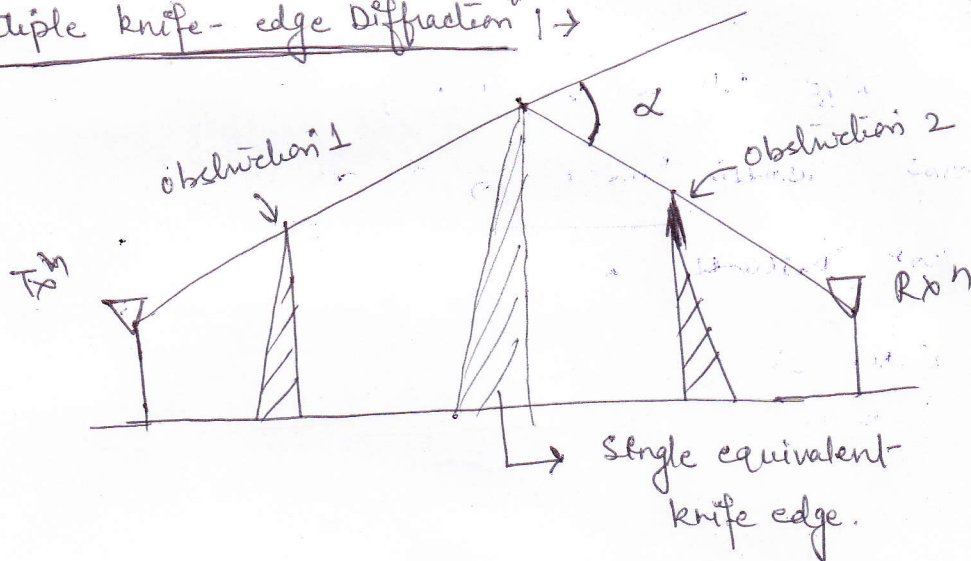 tiple knife-edge Diffraction :→
obstruction 1
α
obstruction 2
Txᵐ
Rxⁿ
Single equivalent
knife edge.